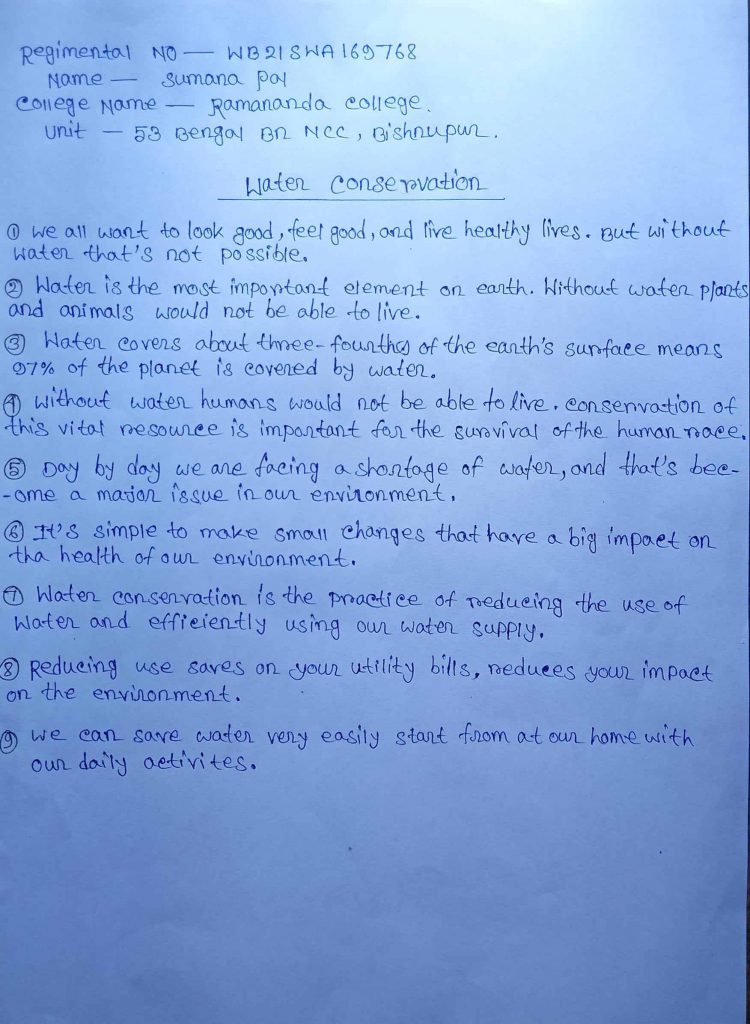 Regimental NO — WB21SWA169768
Name — Sumana Pal
College Name — Ramananda College.
Unit — 53 Bengal Bn NCC, Bishnupur.
Water Conservation
① We all want to look good, feel good, and live healthy lives. But without
water that's not possible.
② Water is the most important element on earth. Without water plants
and animals would not be able to live.
③ Water covers about three-fourths of the earth's surface means
97% of the planet is covered by water.
④ Without water humans would not be able to live. Conservation of
this vital resource is important for the survival of the human race.
⑤ Day by day we are facing a shortage of water, and that's bec-
-ome a major issue in our environment.
⑥ It's simple to make small changes that have a big impact on
tha health of our environment.
⑦ Water conservation is the practice of reducing the use of
water and efficiently using our water supply.
⑧ Reducing use saves on your utility bills, reduces your impact
on the environment.
⑨ We can save water very easily start from at our home with
our daily activites.